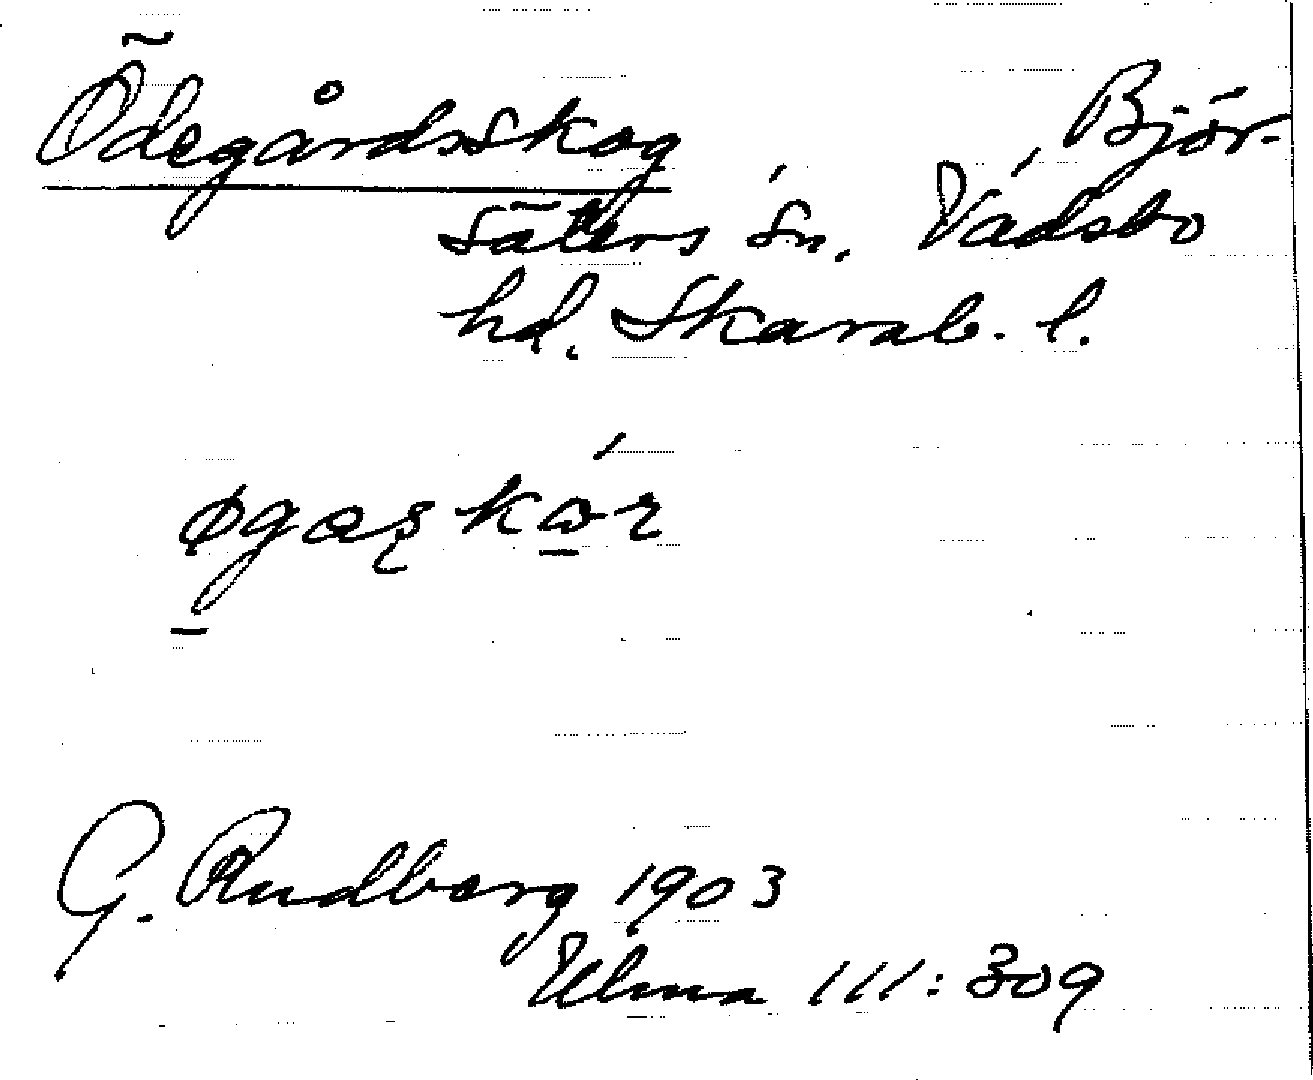 Ödegårdsskog Björ-
säters sn. Vadsbo
hd. Skarab. l.
G. Rudberg 1903
Ulma 111:309